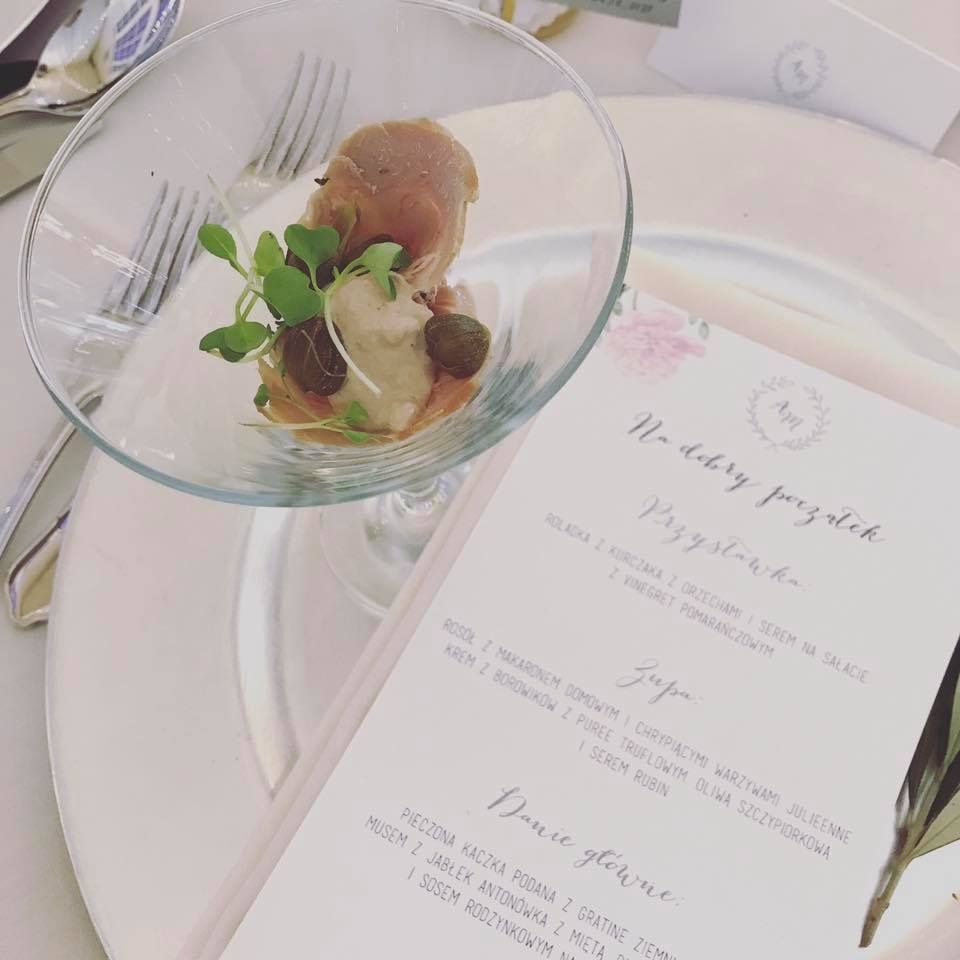 AM
Na dobry początek
Przystawka:
ROLADKA Z KURCZAKA Z ORZECHAMI I SEREM NA SAŁACIE
Z VINEGRET POMARAŃCZOWYM
Zupa:
ROSÓŁ Z MAKARONEM DOMOWYM I CHRYPIĄCYMI WARZYWAMI JULIEENNE
KREM Z BOROWIKÓW Z PUREE TRUFLOWYM OLIWĄ SZCZYPIORKOWĄ
I SEREM RUBIN
Danie główne:
PIECZONA KACZKA PODANA Z GRATINE
MUSEM Z JABŁEK ANTONÓWKA Z MIĘTĄ
I SOSEM RODZYNKOWYM